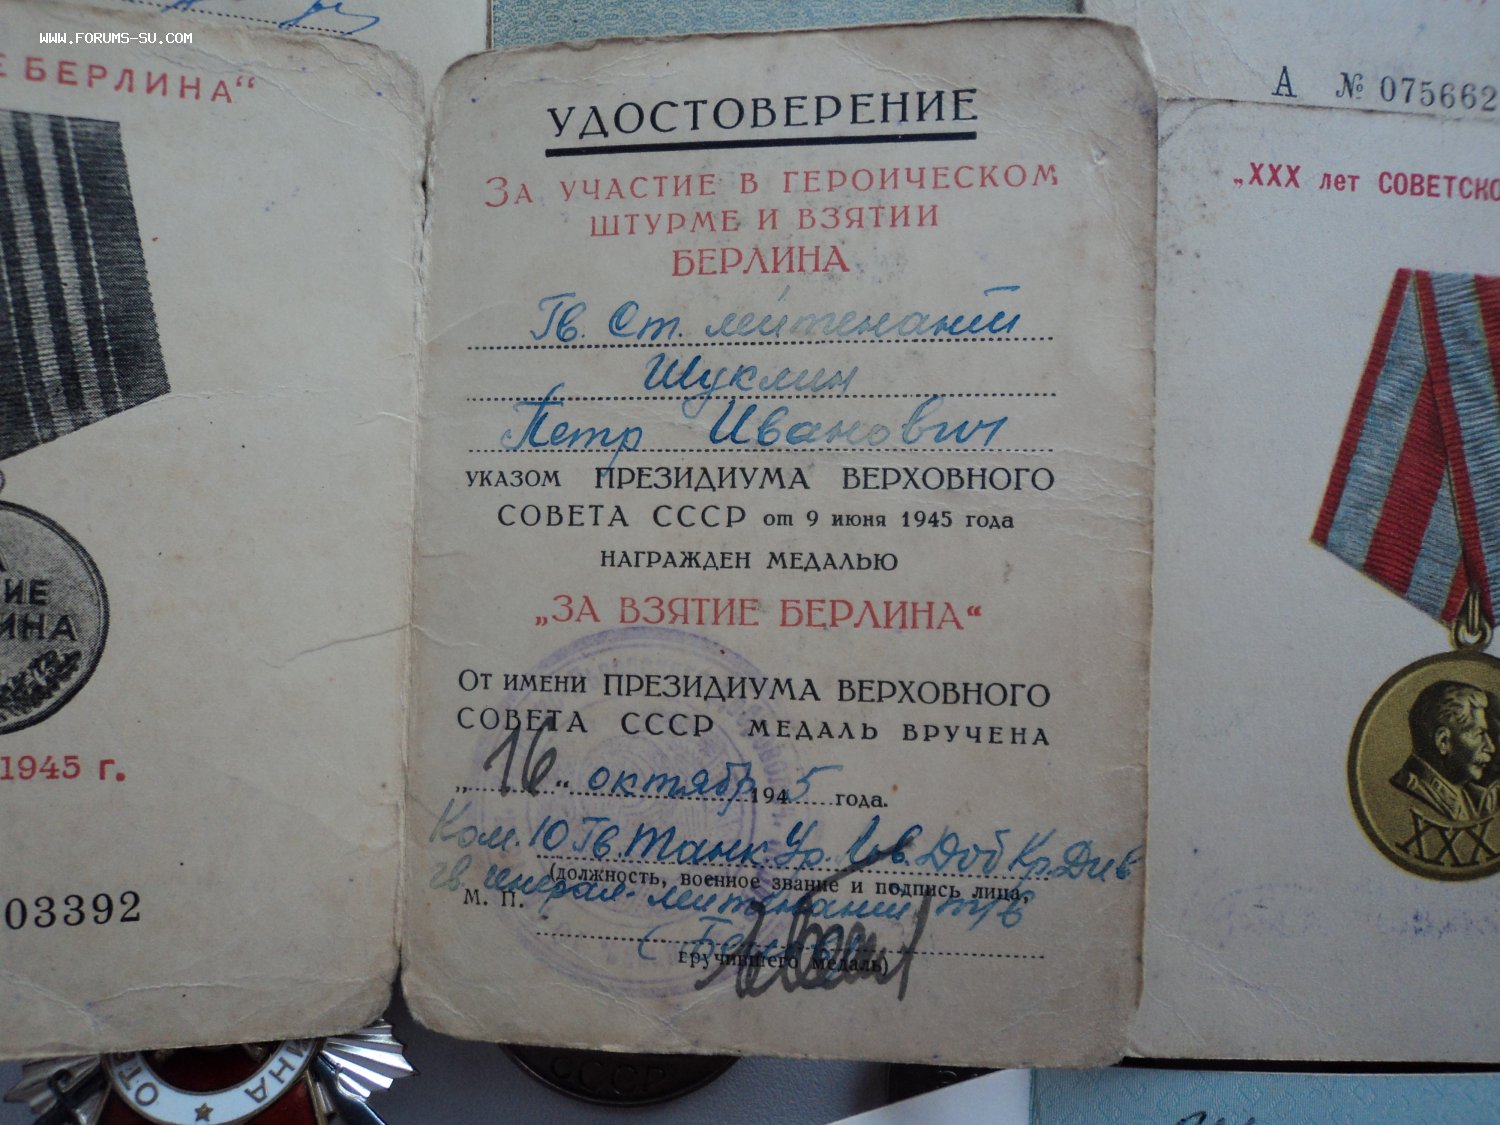 WWW.FORUMS-SU.COM
Е БЕРЛИНА“
ИЕ
ИНА
1945 г.
03392
УДОСТОВЕРЕНИЕ
ЗА УЧАСТИЕ В ГЕРОИЧЕСКОМ
ШТУРМЕ И ВЗЯТИИ
БЕРЛИНА
Гв. Ст. лейтенант
Шуклин
Петр Иванович
УКАЗОМ ПРЕЗИДИУМА ВЕРХОВНОГО
СОВЕТА СССР от 9 июня 1945 года
НАГРАЖДЕН МЕДАЛЬЮ
„ЗА ВЗЯТИЕ БЕРЛИНА“
ОТ ИМЕНИ ПРЕЗИДИУМА ВЕРХОВНОГО
СОВЕТА СССР МЕДАЛЬ ВРУЧЕНА
„16“ октябр 1945 года.
Ком. 10 Гв. Танк. Ур. Льв. Доб Кр. Див
(должность, военное звание и подпись лица,
гв. генерал-лейтенант т/в
М. П.
вручившего медаль)
А № 075662
„XXX лет СОВЕТСКО
XXX
СССР